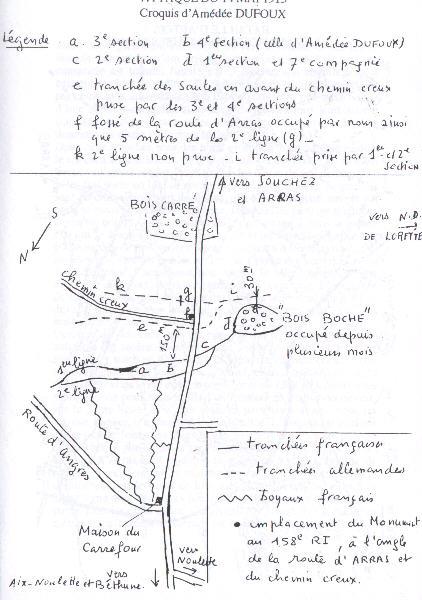 ATTAQUE DU 9 MAI 1915
Croquis d'Amédée DUFOUX
Légende
a. 3e section
b 4e section (celle d'Amédée DUFOUX)
c 2e section
d 1ère section et 7e compagnie
e tranchée des Saules en avant du chemin creux
prise par les 3e et 4e sections
f fossé de la route d'Arras occupé par nous ainsi
que 5 mètres de la 2e ligne (g)
k 2e ligne non prise - i tranchée prise par 1ère et 2e
section
vers SOUCHEZ
et ARRAS
BOIS CARRÉ
vers N.D.
DE LORETTE
S
N
chemin creux
k
g
i
30m
f
e
d
"BOIS BOCHE"
occupé depuis
plusieurs mois
110m
c
1ère ligne
a
b
2e ligne
Route d'Angres
tranchées françaises
tranchées allemandes
boyaux français
emplacement du Monument
au 158e RI, à l'angle
de la route d'ARRAS et
du chemin creux.
Maison du
Carrefour
vers
Noulette
vers
Aix-Noulette et Béthune